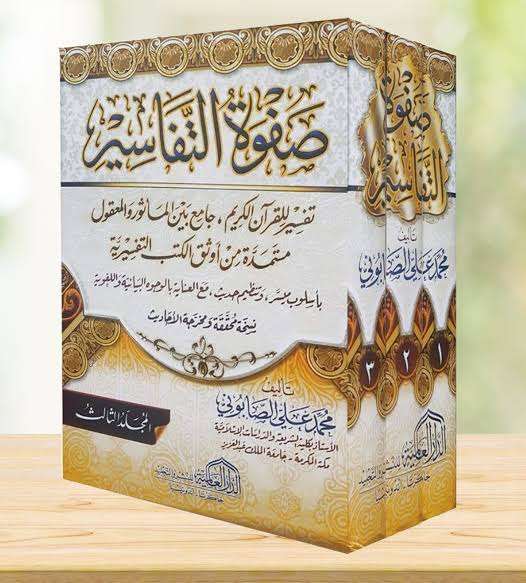 صفوة التفاسير
تفسير للقرآن الكريم، جامع بين المأثور والمعقول
مستمدة من أوثق الكتب التفسيرية
بأسلوب ميسر، وتنظيم حديث، مع العناية بالوجوه البيانية واللغوية
نسخة محققة ومخرجة الأحاديث
تأليف
محمد علي الصابوني
الأستاذ بكلية الشريعة والدراسات الإسلامية
مكة المكرمة - جامعة الملك عبد العزيز
المجلد الثالث
الدار العالمية للنشر والتجليد
جاكرتا - اندونيسيا
صفوة
التفاسير
تأليف
محمد علي الصابوني
١
٢
٣
الدار العالمية للنشر والتجليد
جاكرتا - اندونيسيا